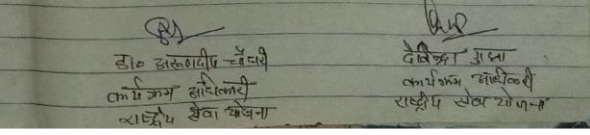 डा० अरुणदीप चौधरी
कार्यक्रम अधिकारी
राष्ट्रीय सेवा योजना
देविन्द्रा गुप्ता
कार्यक्रम अधीकरी
राष्ट्रीय सेवा योजना